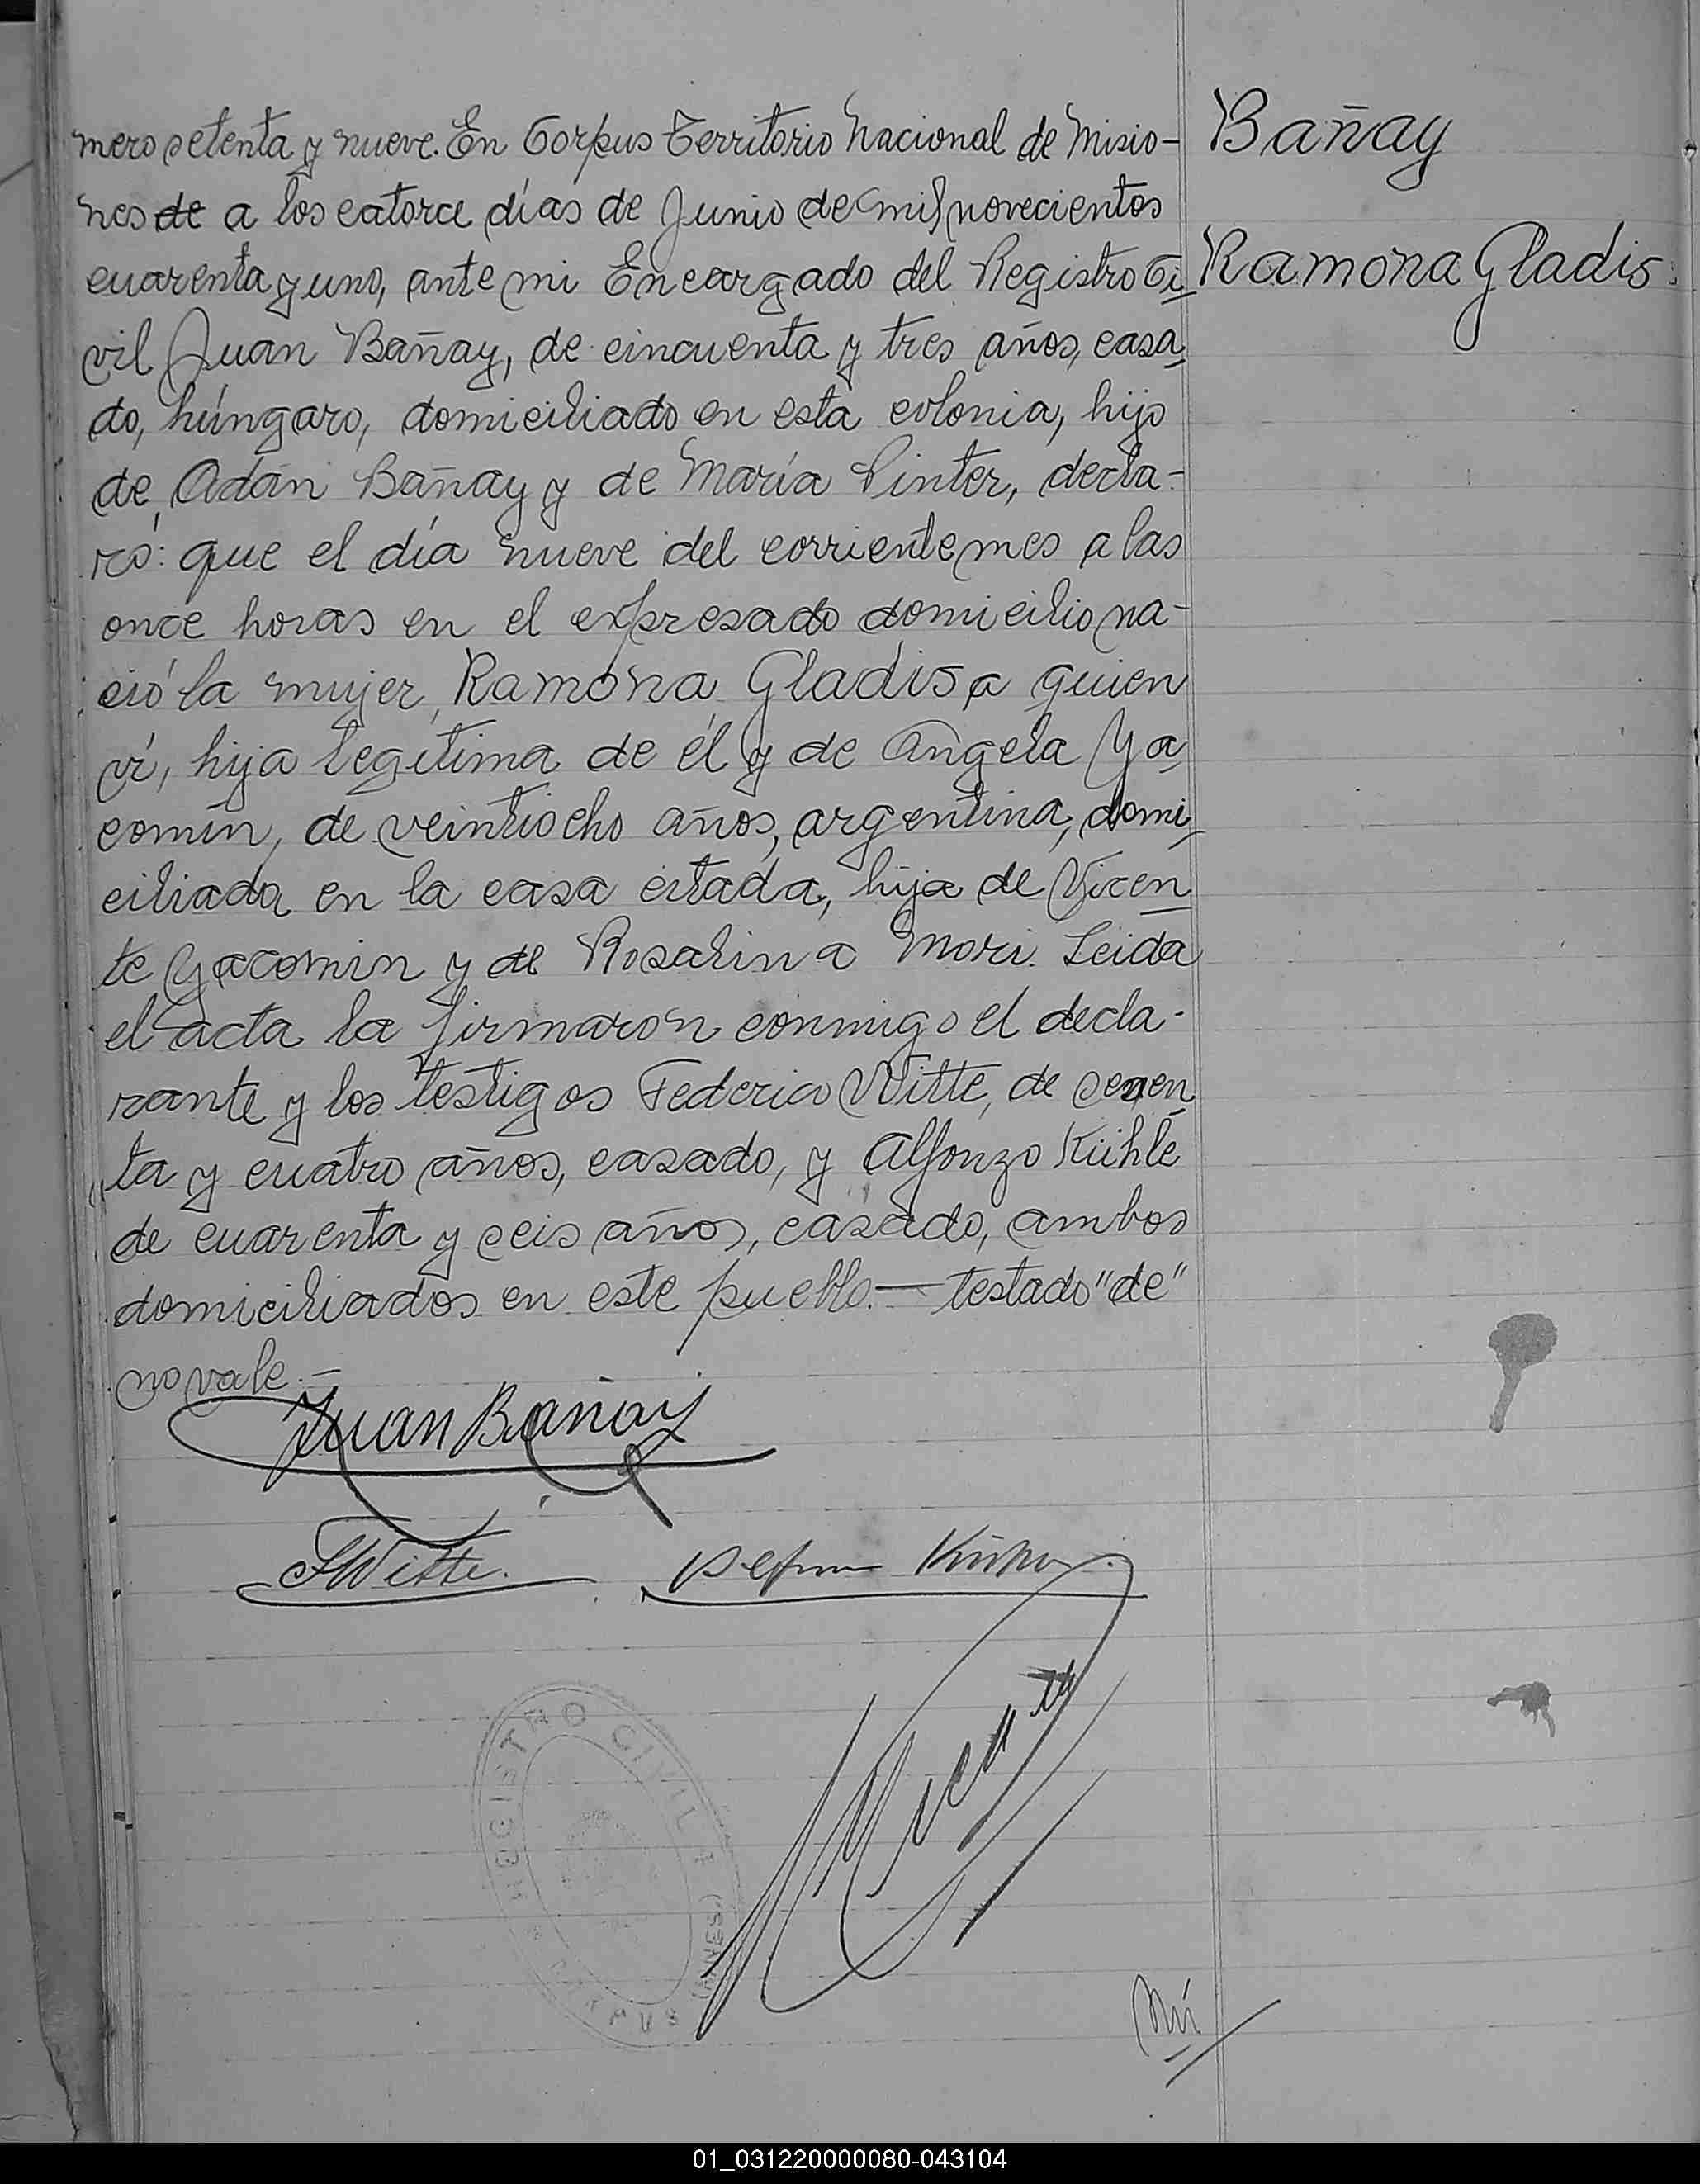 mero setenta y nueve. En Corpus Territorio Nacional de Misio-
nes de a los catorce días de Junio de mil novecientos
cuarenta y uno, ante mi Encargado del Registro Ci
vil Juan Bañay, de cincuenta y tres años, casa
do, húngaro, domiciliado en esta colonia, hijo
de Adán Bañay y de María Pinter, decla-
ró: que el día nueve del corriente mes a las
once horas en el expresado domicilio na-
ció la mujer, Ramona Gladis a quien
ví, hija legítima de él y de Angela Ya
comin, de veintiocho años, argentina, domi
ciliada en la casa citada, hija de Vicen
te Yacomin y de Rosalina Mori. Leida
el acta la firmaron conmigo el decla-
rante y los testigos Federico Witte, de sesen
ta y cuatro años, casado, y Alfonzo Kühle
de cuarenta y seis años, casado, ambos
domiciliados en este pueblo.— testado "de"
no vale.—
Bañay
Ramona Gladis.
Juan Bañay
F Witte.
REGISTRO CIVIL
CORPUS (MNES.)
Nú
01_031220000080-043104